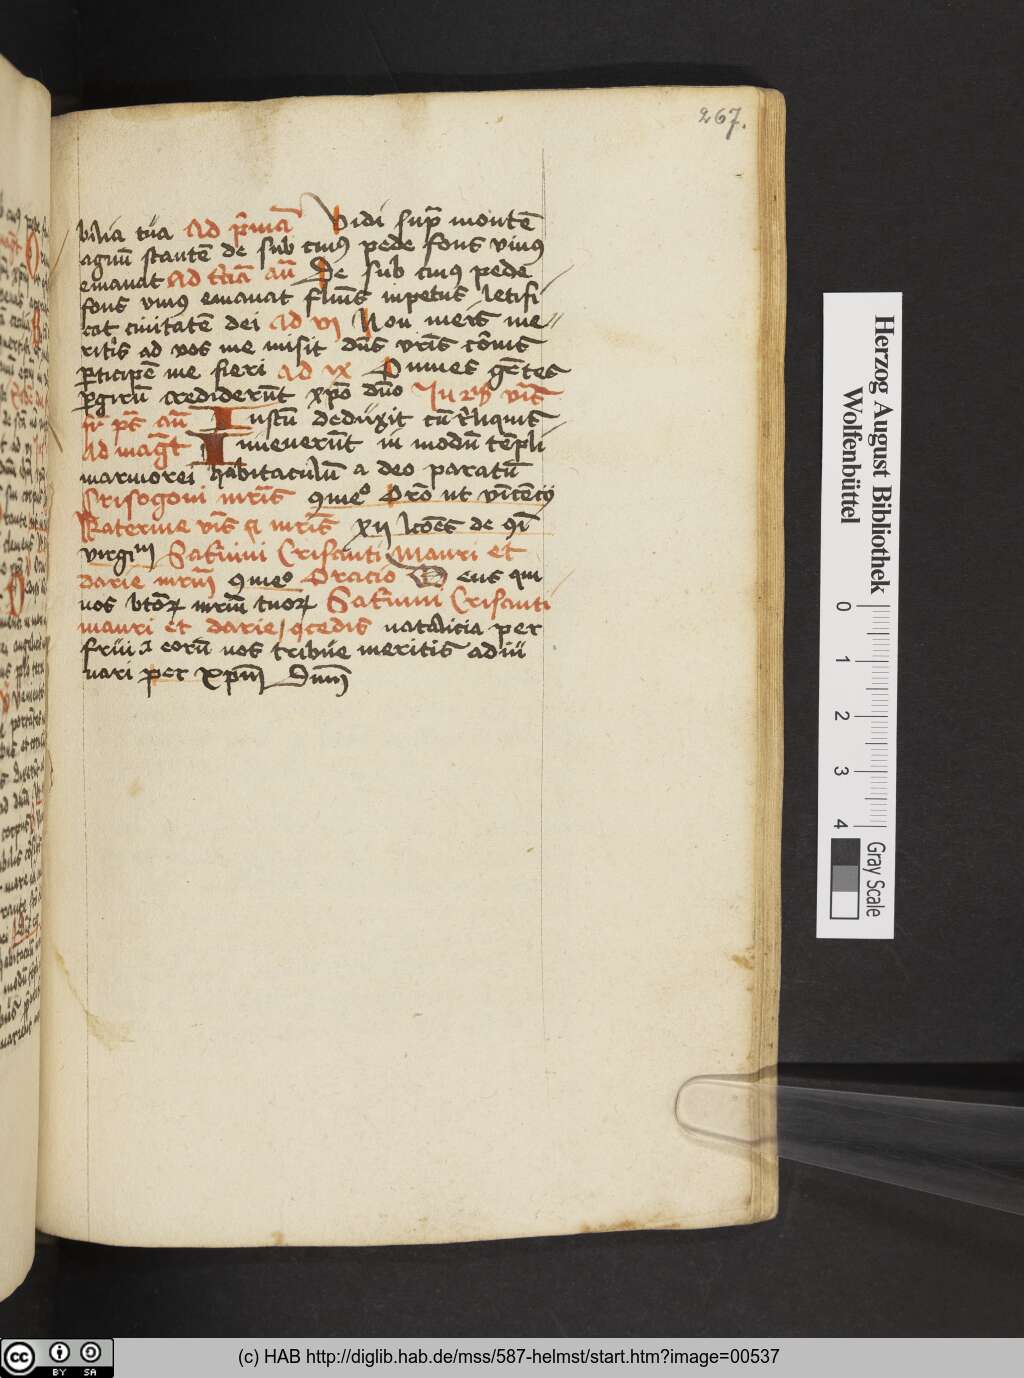 267.
bilia tua Ad p̄mā Vidi sup̄ montē
agnū stantē de sub cuiꝰ pede fons viuꝰ
emanat Ad t̄ciā an̄ De sub cuiꝰ pede
fons viuꝰ emanat flūīs inpetus letifi
cat ciuitatē dei Ad vi Non meis me
ritis ad vos me misit dn̄s vr̄is corōis
p̄ticipē me fieri Ad ix Omnes gētes
p̄ girū crediderūt xp̄o dn̄o In vīs
sr̄ pō an̄ Iustū deduxit cū reliquis
Ad magt̄ Inuenerūt in modū tēpli
marmorei habitaculū a deo paratū
Crisogoni mr̄is ꝯmeᵒ Orō ut vincēcij
Katerine v̄is et mr̄is xii lcōēs de ꝯī
virgiᵐ Sat̄nini Crisanti Mauri et
darie mrm̄ ꝯmeᵒ Oracio Deus qui
nos btōꝝ mrm̄ tuoꝝ Sat̄nini Crisanti
mauri et darie ꝯcedis natalicia per
frui eorū nos tribue meritis adiu
uari per xpm̄ Dnm̄
Herzog August Bibliothek
Wolfenbüttel
0 1 2 3 4
Gray Scale
CC BY SA
(c) HAB http://diglib.hab.de/mss/587-helmst/start.htm?image=00537